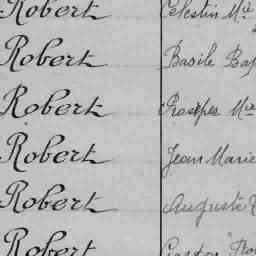 Robert Célestin Mie
Robert Basile Bap
Robert Prosper Mie
Robert Jean Marie
Robert Auguste
Robert Gaston Flo